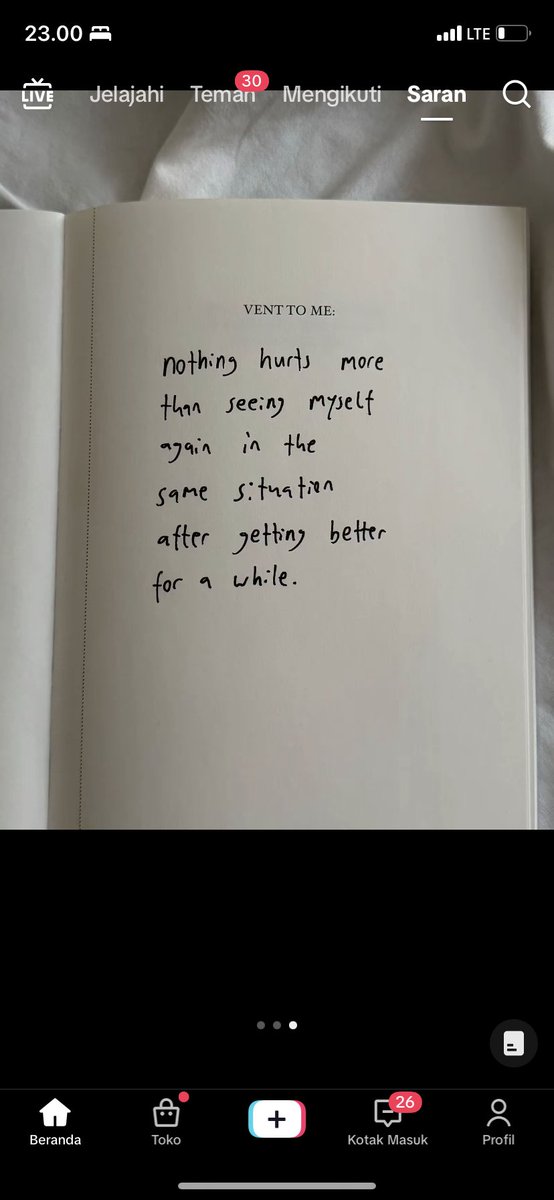 23.00
LTE
LIVE
Jelajahi
Teman
30
Mengikuti
Saran
VENT TO ME:
nothing hurts more
than seeing myself
again in the
same situation
after getting better
for a while.
Beranda
Toko
26
Kotak Masuk
Profil